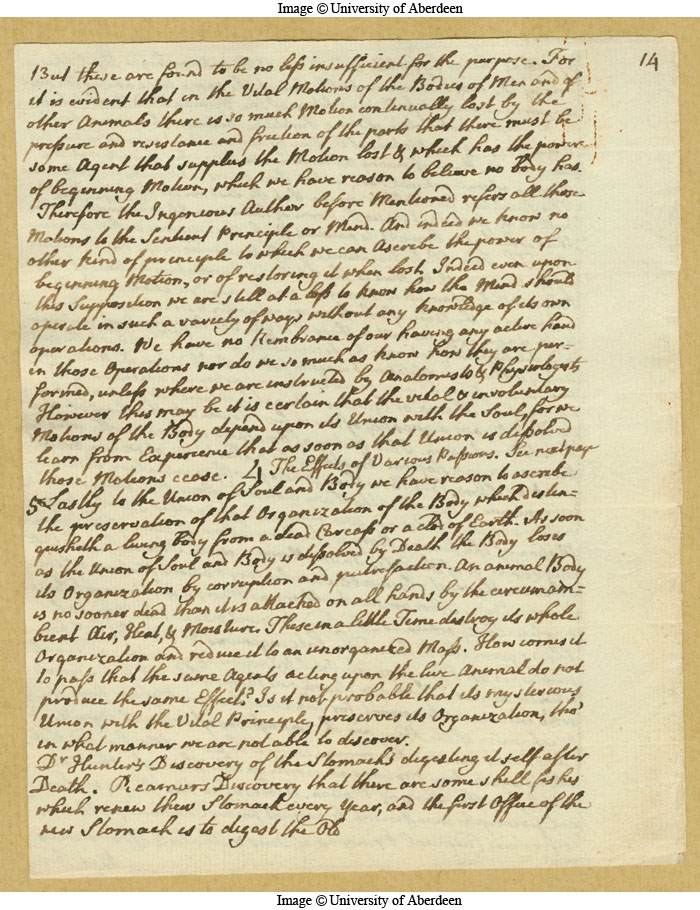 Image © University of Aberdeen
14
But these are found to be no less insufficient for the purpose. For
it is evident that in the Vital Motions of the Bodies of Men and of
other Animals there is so much Motion continually lost by the
pressure and resistance and friction of the parts that there must be
some Agent that supplies the Motion lost & which has the power
of beginning Motion, which we have reason to believe no body has.
Therefore the Ingenious Author before Mentioned refers all these
Motions to the Sentient Principle or Mind. And indeed we know no
other kind of principle to which we can Ascribe the power of
beginning Motion, or of restoring it when lost. Indeed even upon
this Supposition we are still at a loss to know how the Mind should
operate in such a variety of ways without any knowledge of its own
operations. We have no Remembrance of our having any active hand
in those Operations nor do we so much as know how they are per-
formed, unless where we are instructed by Anatomists & Physiologists
However this may be it is certain that the vital & involuntary
Motions of the Body depend upon its Union with the Soul, for we
learn from Experience that as soon as that Union is dissolved
those Motions cease. 4 The Effects of Various Passions. See next page
5 Lastly to the Union of Soul and Body we have reason to ascribe
the preservation of that Organization of the Body which distin-
guisheth a living body from a dead Carcass or a clod of Earth. As soon
as the Union of Soul and Body is dissolved by Death the Body loses
its Organization by corruption and putrefaction. An animal Body
is no sooner dead than it is attacked on all hands by the circumam-
bient Air, Heat, & Moisture. These in a little Time destroy its whole
Organization and reduce it to an unorganized Mass. How comes it
to pass that the same Agents acting upon the live Animal do not
produce the same Effect? Is it not probable that its mysterious
Union with the Vital Principle, preserves its Organization, tho'
in what manner we are not able to discover.
Dr Hunter's Discovery of the Stomach's digesting it self after
Death. Reaumurs Discovery that there are some shell fishes
which renew their Stomach every Year, and the first Office of the
new Stomach is to digest the Old
Image © University of Aberdeen